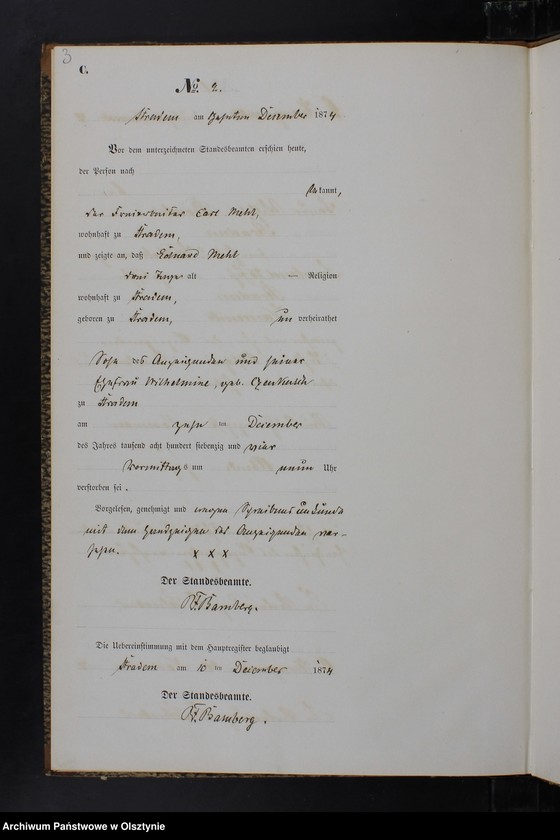 3
C.
No. 2.
Stradem am zehnten Dezember 1874
Vor dem unterzeichneten Standesbeamten erschien heute,
der Person nach
bekannt,
der Carl Mehl,
wohnhaft zu Stradem,
und zeigte an, daß Eduard Mehl
drei Tage alt — Religion
wohnhaft zu Stradem,
geboren zu Stradem, un verheirathet
Sohn des Anzeigenden und seiner
Ehefrau Wilhelmine, geb.
zu Stradem
am zehn ten Dezember
des Jahres tausend acht hundert siebenzig und vier
Vormittags um neun Uhr
verstorben sei.
Vorgelesen, genehmigt und wegen Schreibensunkunde
mit dem Handzeichen des Anzeigenden ver-
sehen. x x x
Der Standesbeamte.
Bamberg.
Die Uebereinstimmung mit dem Hauptregister beglaubigt
Stradem am 10 ten Dezember 1874
Der Standesbeamte.
Bamberg.
Archiwum Państwowe w Olsztynie